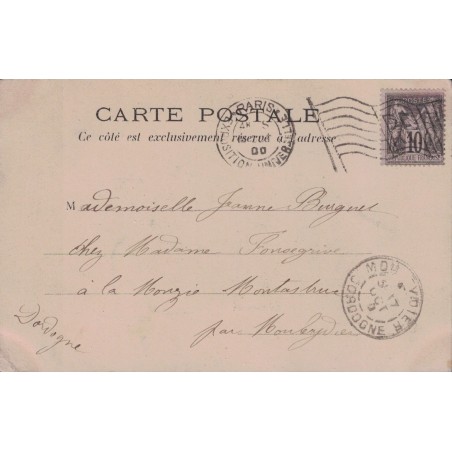 PARIS
EXPOSITION UNIVERSELLE
00
POSTES
10
CARTE POSTALE
Ce côté est exclusivement réservé à l'adresse
Mademoiselle Jeanne Burguet
chez Madame Fonsegrive
à la Monzie Montastruc
par Mouleydier
Dordogne
MOULEYDIER
DORDOGNE